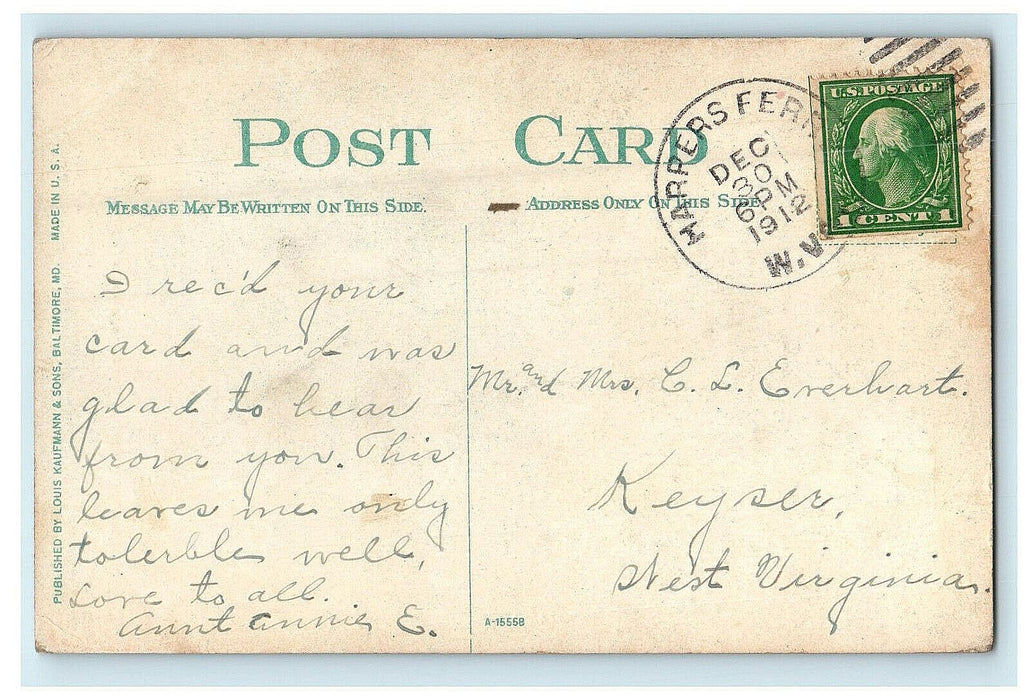 POST CARD
MESSAGE MAY BE WRITTEN ON THIS SIDE.
ADDRESS ONLY ON THIS SIDE
HARPERS FERR
DEC
30
6 PM
1912
W.V
U.S. POSTAGE
1 CENT 1
PUBLISHED BY LOUIS KAUFMANN & SONS, BALTIMORE, MD. MADE IN U.S.A.
I rec'd your
card and was
glad to hear
from you. This
leaves me only
tolerble well,
Love to all.
Aunt Annie E.
Mr. and Mrs. C. L. Everhart.
Keyser,
West Virginia.
A-15558